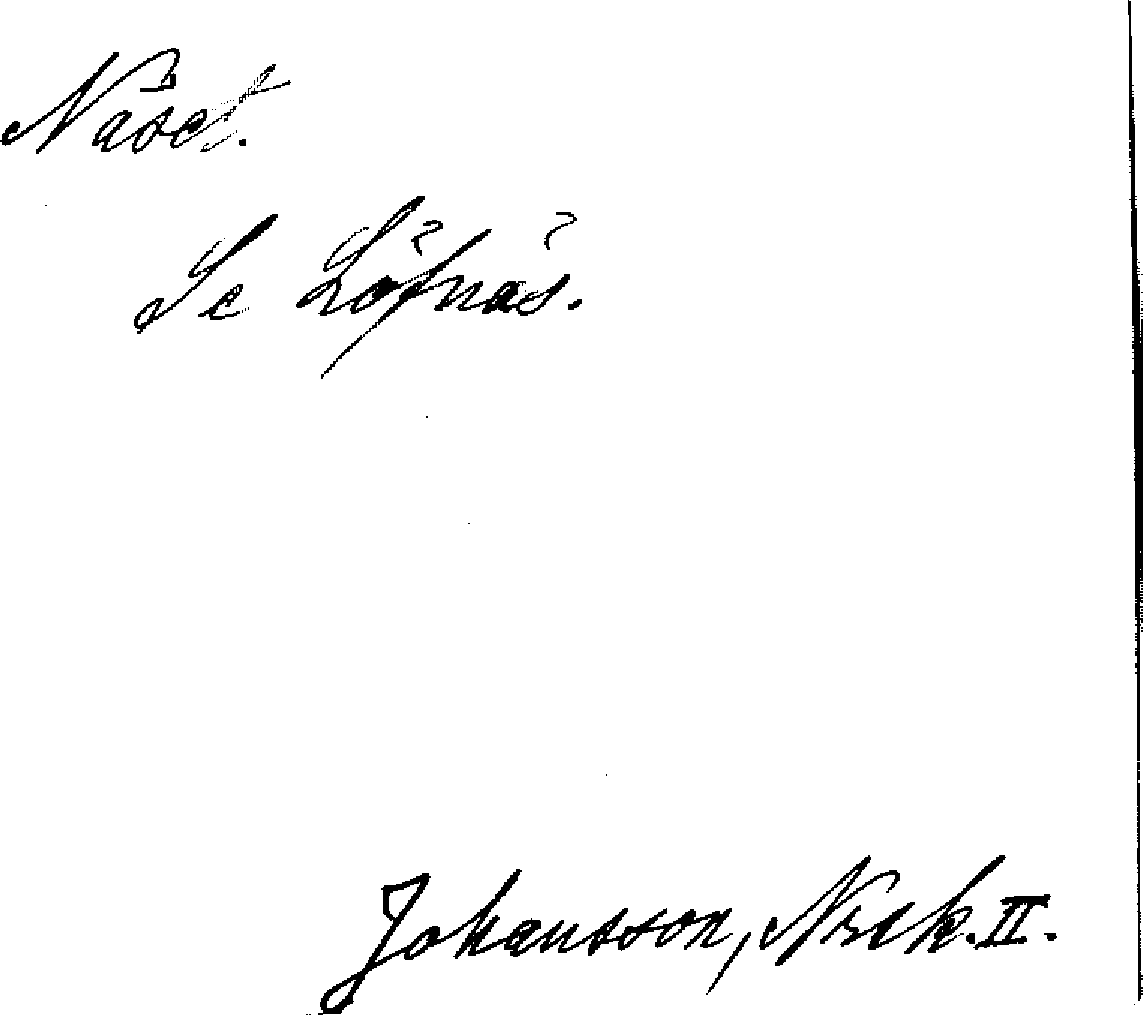 Näset.
Se Löfnäs.
Johansson, Nrsk. II.